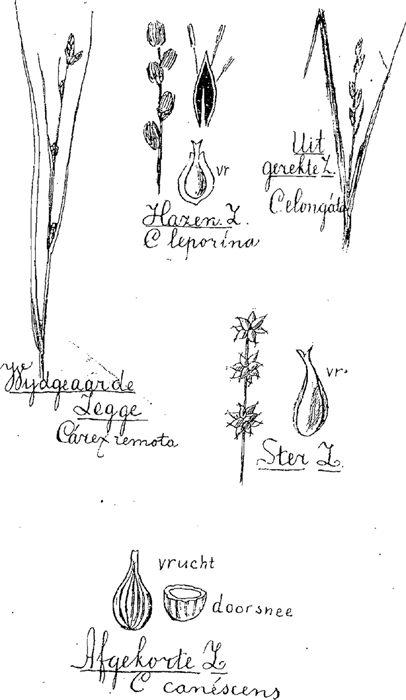 vr
Hazen. Z.
C leporína
Uit
gerekte Z.
C. elongáta
Wydgeaarde
Zegge
Cárex remota
vr.
Ster Z.
vrucht
doorsnee
Afgekorte Z
C canéscens